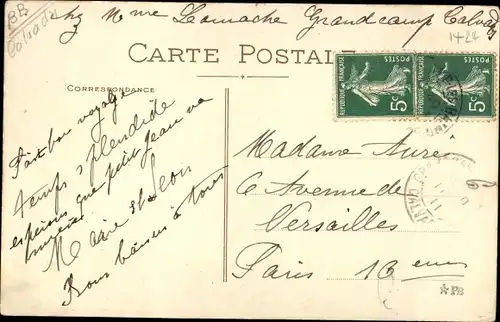 BB
Calvados
chez Mme Lomache Grandcamp Calvados
1424
CARTE POSTALE
CORRESPONDANCE
REPUBLIQUE FRANÇAISE POSTES 5c
REPUBLIQUE FRANÇAISE POSTES 5c
Fait bon voyage
temps splendide
espérons que petit Jean va
mieux
Marie et Léon
Bons baisers à tous
Madame
6 Avenue de
Versailles
Paris 16 eme
*PB